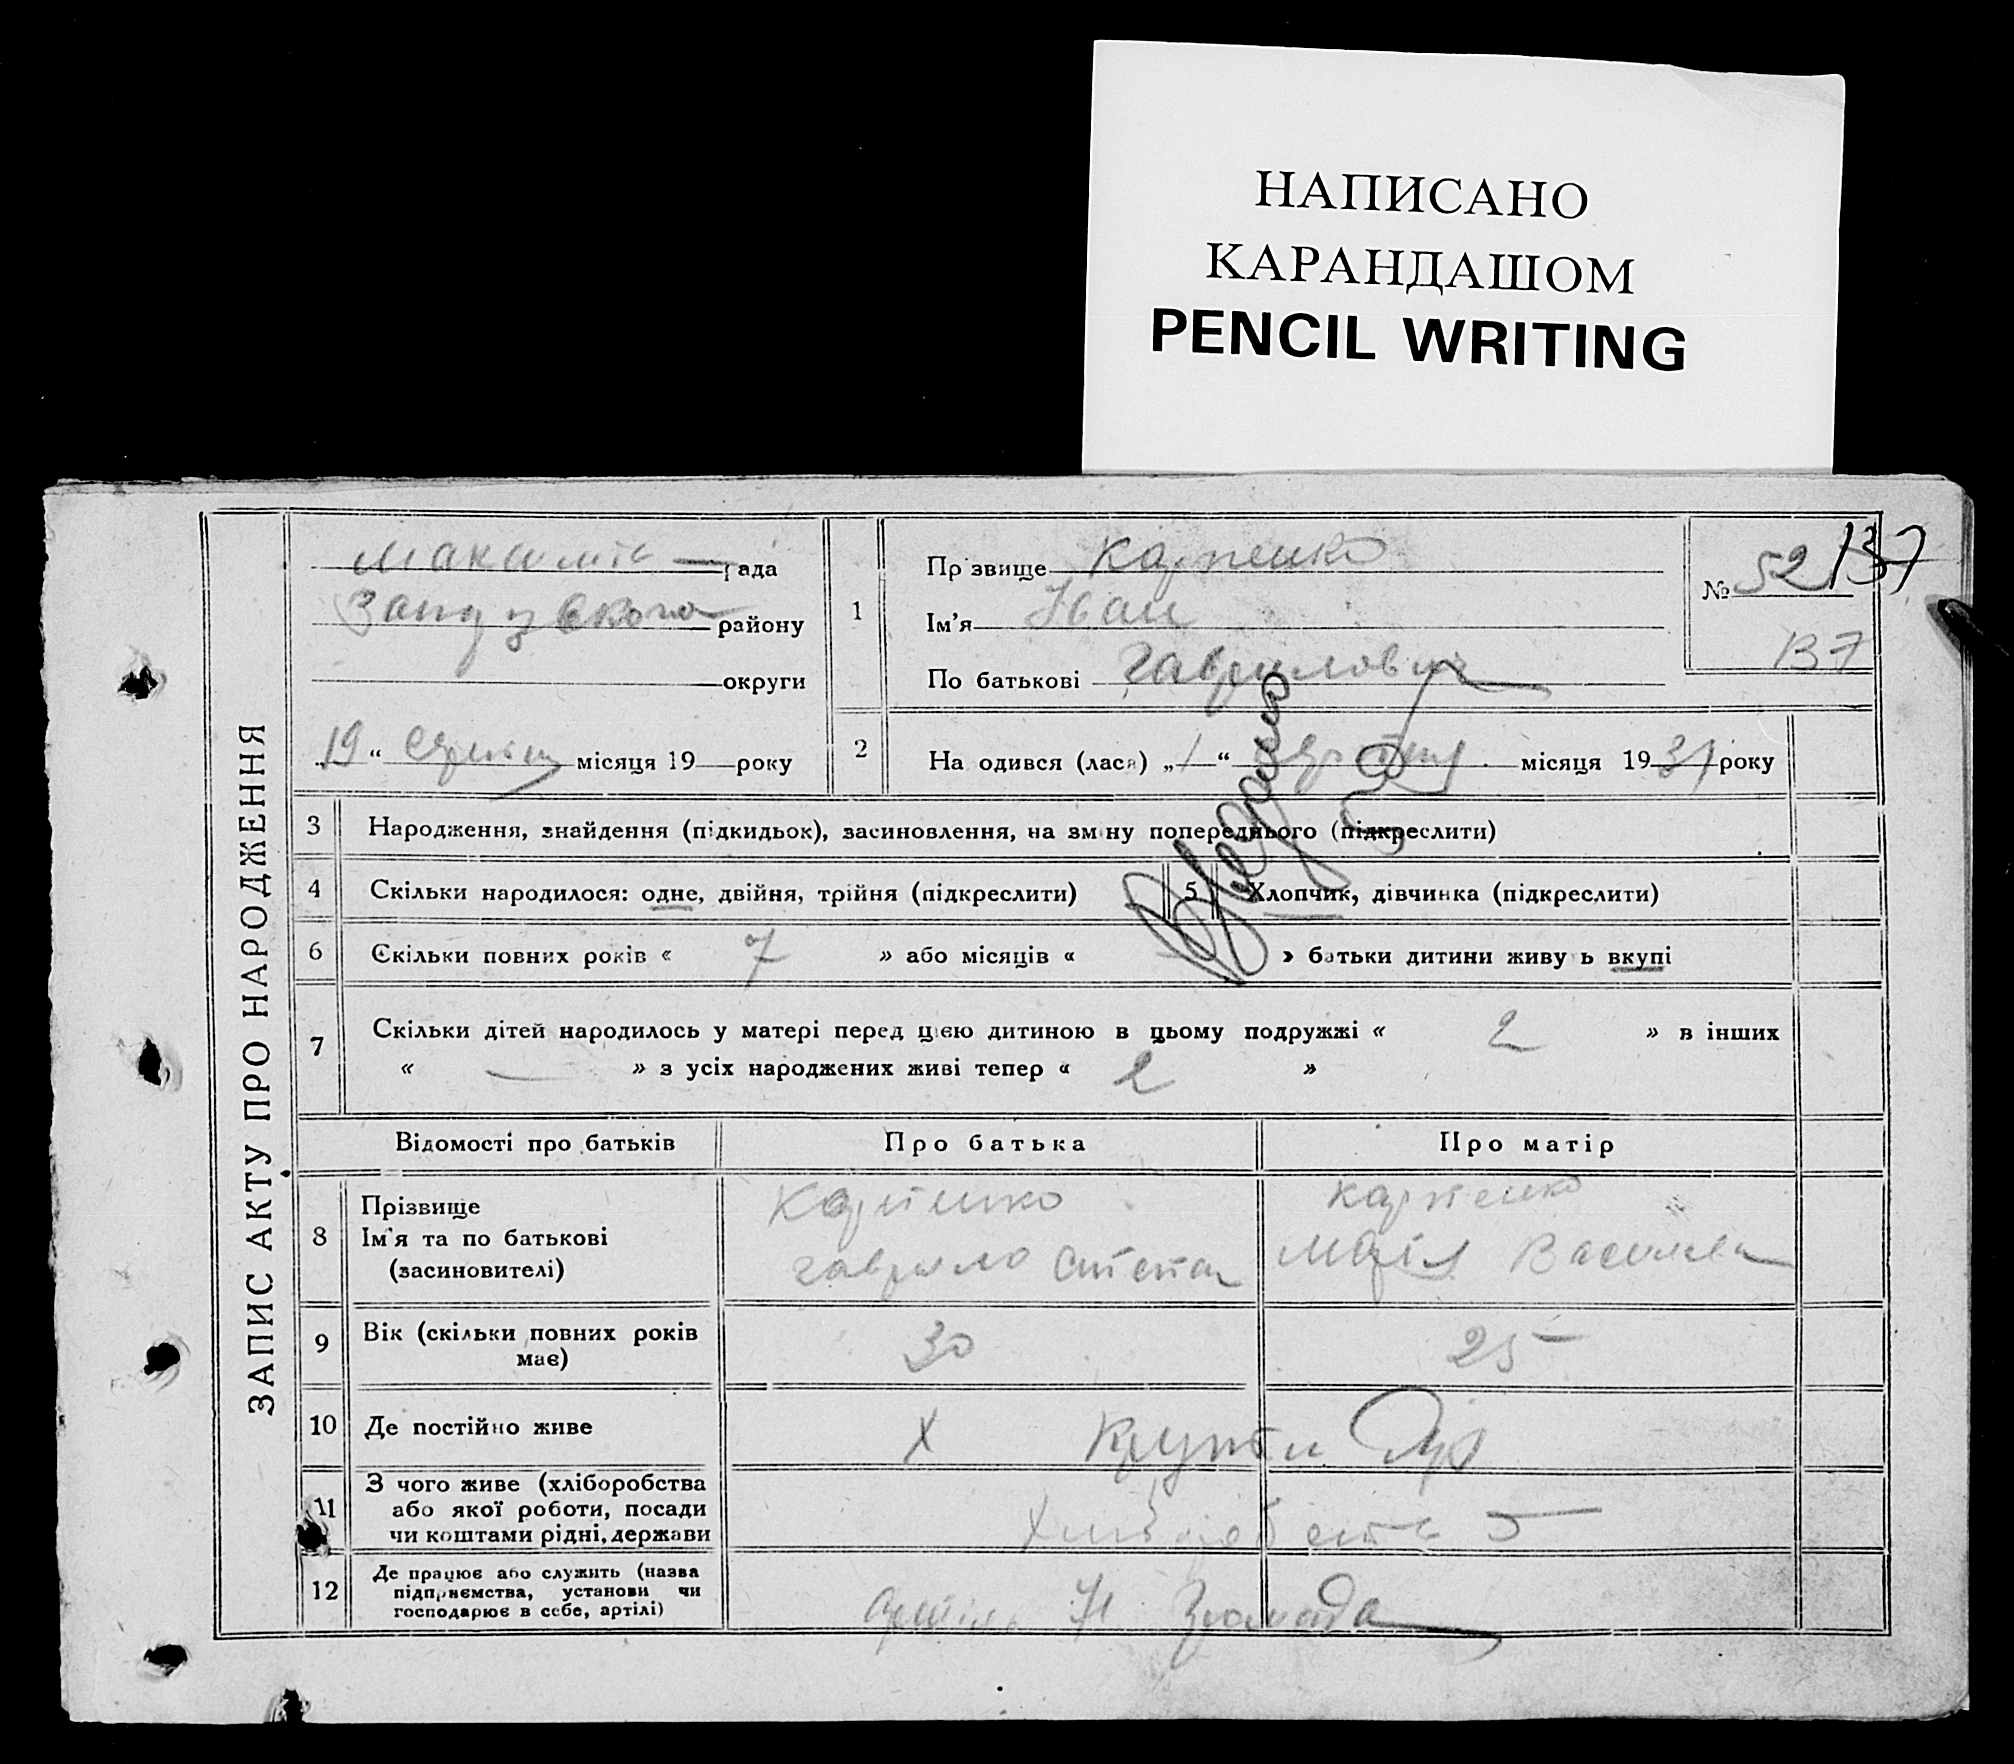 НАПИСАНО
КАРАНДАШОМ
PENCIL WRITING
ЗАПИС АКТУ ПРО НАРОДЖЕННЯ
рада
району
округи
„19“ серпня місяця 19 року
1
Прізвище Карпенко
Ім'я Іван
По батькові Гаврилович
№ 52 137
137
2 На одився (лася) „1“ серпня місяця 1931 року
3 Народження, знайдення (підкидьок), засиновлення, на зміну попереднього (підкреслити)
4 Скільки народилося: одне, двійня, трійня (підкреслити) 5 Хлопчик, дівчинка (підкреслити)
6 Скільки повних років « 7 » або місяців « » батьки дитини живуть вкупі
7 Скільки дітей народилось у матері перед цією дитиною в цьому подружжі « 2 » в інших
« — » з усіх народжених живі тепер « 2 »
Відомості про батьків Про батька Про матір
8 Прізвище Карпенко Карпенко
Ім'я та по батькові Гаврило Степан Марія Василева
(засиновителі)
9 Вік (скільки повних років 30 25
має)
10 Де постійно живе х
11 З чого живе (хліборобства
або якої роботи, посади
чи коштами рідні, держави
12 Де працює або служить (назва
підприємства, установи чи
господарює в себе, артілі) Артіль Громада